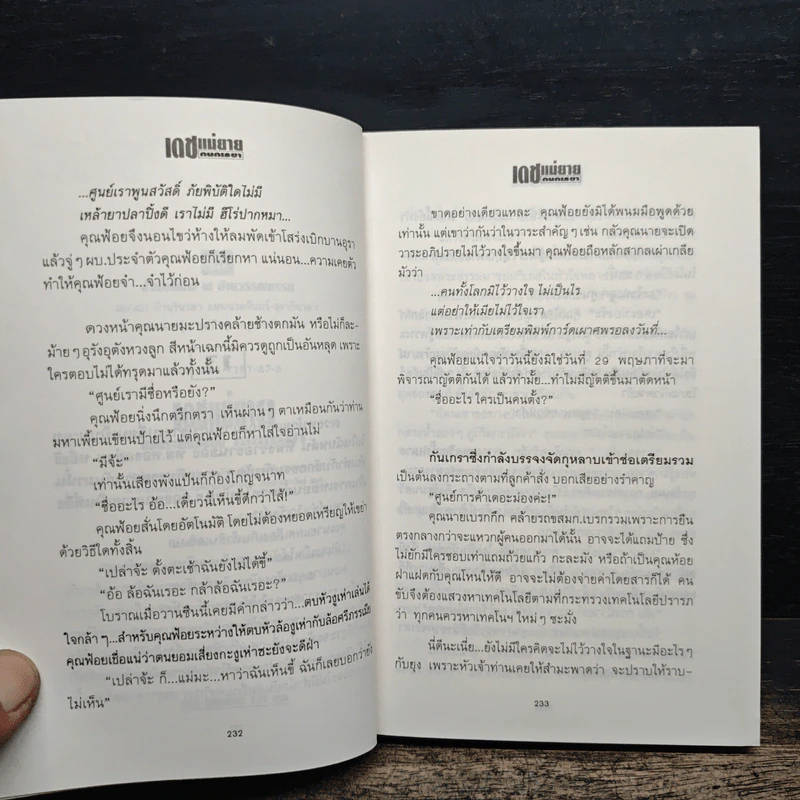 เดชแม่ยาย
กนกเรขา
...ศูนย์เราพูนสวัสดิ์ ภัยพิบัติใดไม่มี
เหล้ายาปลาปิ้งดี เราไม่มี ฮีโร่ปากหมา...
คุณฟ้อยจึงนอนไขว่ห้างให้ลมพัดเข้าโสร่งเบิกบานอุรา
แล้วจู่ๆ ผบ.ประจำตัวคุณฟ้อยก็เรียกหา แน่นอน...ความเคยตัว
ทำให้คุณฟ้อยจ๋า..จ๋าไว้ก่อน
ดวงหน้าคุณนายมะปรางคล้ายช้างตกมัน หรือไม่ก็ละ-
ม้ายๆ อุรังอุตังหวงลูก สีหน้าเฉกนี้มิควรดูถูกเป็นอันหลุด เพราะ
ใครตอบไม่ได้ทรุดมาแล้วทั้งนั้น
“ศูนย์เรามีชื่อหรือยัง?”
คุณฟ้อยนิ่งนึกตรึกตรา เห็นผ่านๆ ตาเหมือนกันว่าท่าน
มหาเพี้ยนเขียนป้ายไว้ แต่คุณฟ้อยก็หาใส่ใจอ่านไม่
“มีจ้ะ”
เท่านั้นเสียงพังแป้นก็ก้องโกญจนาท
“ชื่ออะไร อ้อ...เดี๋ยวนี้เห็นขี้ดีกว่าไส้!”
คุณฟ้อยสั่นโดยอัตโนมัติ โดยไม่ต้องหยอดเหรียญให้เขย่า
ด้วยวิธีใดทั้งสิ้น
“เปล่าจ้ะ ตั้งตะเช้าฉันยังไม่ได้ขี้”
“อ้อ ล้อฉันเรอะ กล้าล้อฉันเรอะ?”
โบราณเมื่อวานซืนนี้เคยมีคำกล่าวว่า...ตบหัวงูเห่าเล่นได้
ใจกล้าๆ...สำหรับคุณฟ้อยระหว่างให้ตบหัวล้องูเห่ากับล้อศรีภรรเมีย
คุณฟ้อยเชื่อแน่ว่าตนยอมเสี่ยงกะงูเห่าซะยังจะดีฝ่า
“เปล่าจ้ะ ก็...แม่มะ...หาว่าฉันเห็นขี้ ฉันก็เลยบอกว่ายัง
ไม่เห็น”
232
เดชแม่ยาย
กนกเรขา
ขาดอย่างเดียวแหละ คุณฟ้อยยังมิได้พนมมือพูดด้วย
เท่านั้น แต่เขาว่ากันว่าในวาระสำคัญๆ เช่น กลัวคุณนายจะเปิด
วาระอภิปรายไม่ไว้วางใจขึ้นมา คุณฟ้อยถือหลักสากลเผ่าเกลีย
มัวว่า
...คนทั้งโลกมิไว้วางใจ ไม่เป็นไร
แต่อย่าให้เมียไม่ไว้ใจเรา
เพราะเท่ากับเตรียมพิมพ์การ์ดเผาศพรอลงวันที่...
คุณฟ้อยแน่ใจว่าวันนี้ยังมิใช่วันที่ 29 พฤษภาที่จะมา
พิจารณาญัตติกันได้ แล้วทำมั้ย...ทำไมมีญัตติขึ้นมาตัดหน้า
“ชื่ออะไร ใครเป็นคนตั้ง?”
กันเกราซึ่งกำลังบรรจงจัดกุหลาบเข้าช่อเตรียมรวม
เป็นต้นลงกระถางตามที่ลูกค้าสั่ง บอกเสียอย่างรำคาญ
“ศูนย์การค้าเดอะม่องค่ะ!”
คุณนายเบรกกึ๊ก คล้ายรถขสมก.เบรกรวมเพราะการยืน
ตรงกลางกว่าจะแหวกผู้คนออกมาได้นั้น อาจจะได้แถมป้าย ซึ่ง
ไม่ยักมีใครชอบเท่าแถมถ้วยแก้ว กะละมัง หรือถ้าเป็นคุณห้อย
ฝาแฝดกับคุณโหนให้ดี อาจจะไม่ต้องจ่ายค่าโดยสารก็ได้ คน
ขับจึงต้องแสวงหาเทคโนโลยีตามที่กระทรวงเทคโนโลยีปรารภ
ว่า ทุกคนควรหาเทคโนฯ ใหม่ๆ ซะมั่ง
นี่ดีนะเนี่ย...ยังไม่มีใครคิดจะไม่ไว้วางใจในฐานะมีอะไรๆ
กับยุง เพราะหัวเจ้าท่านเคยให้สำมะพาดว่า จะปราบให้ราบ-
233